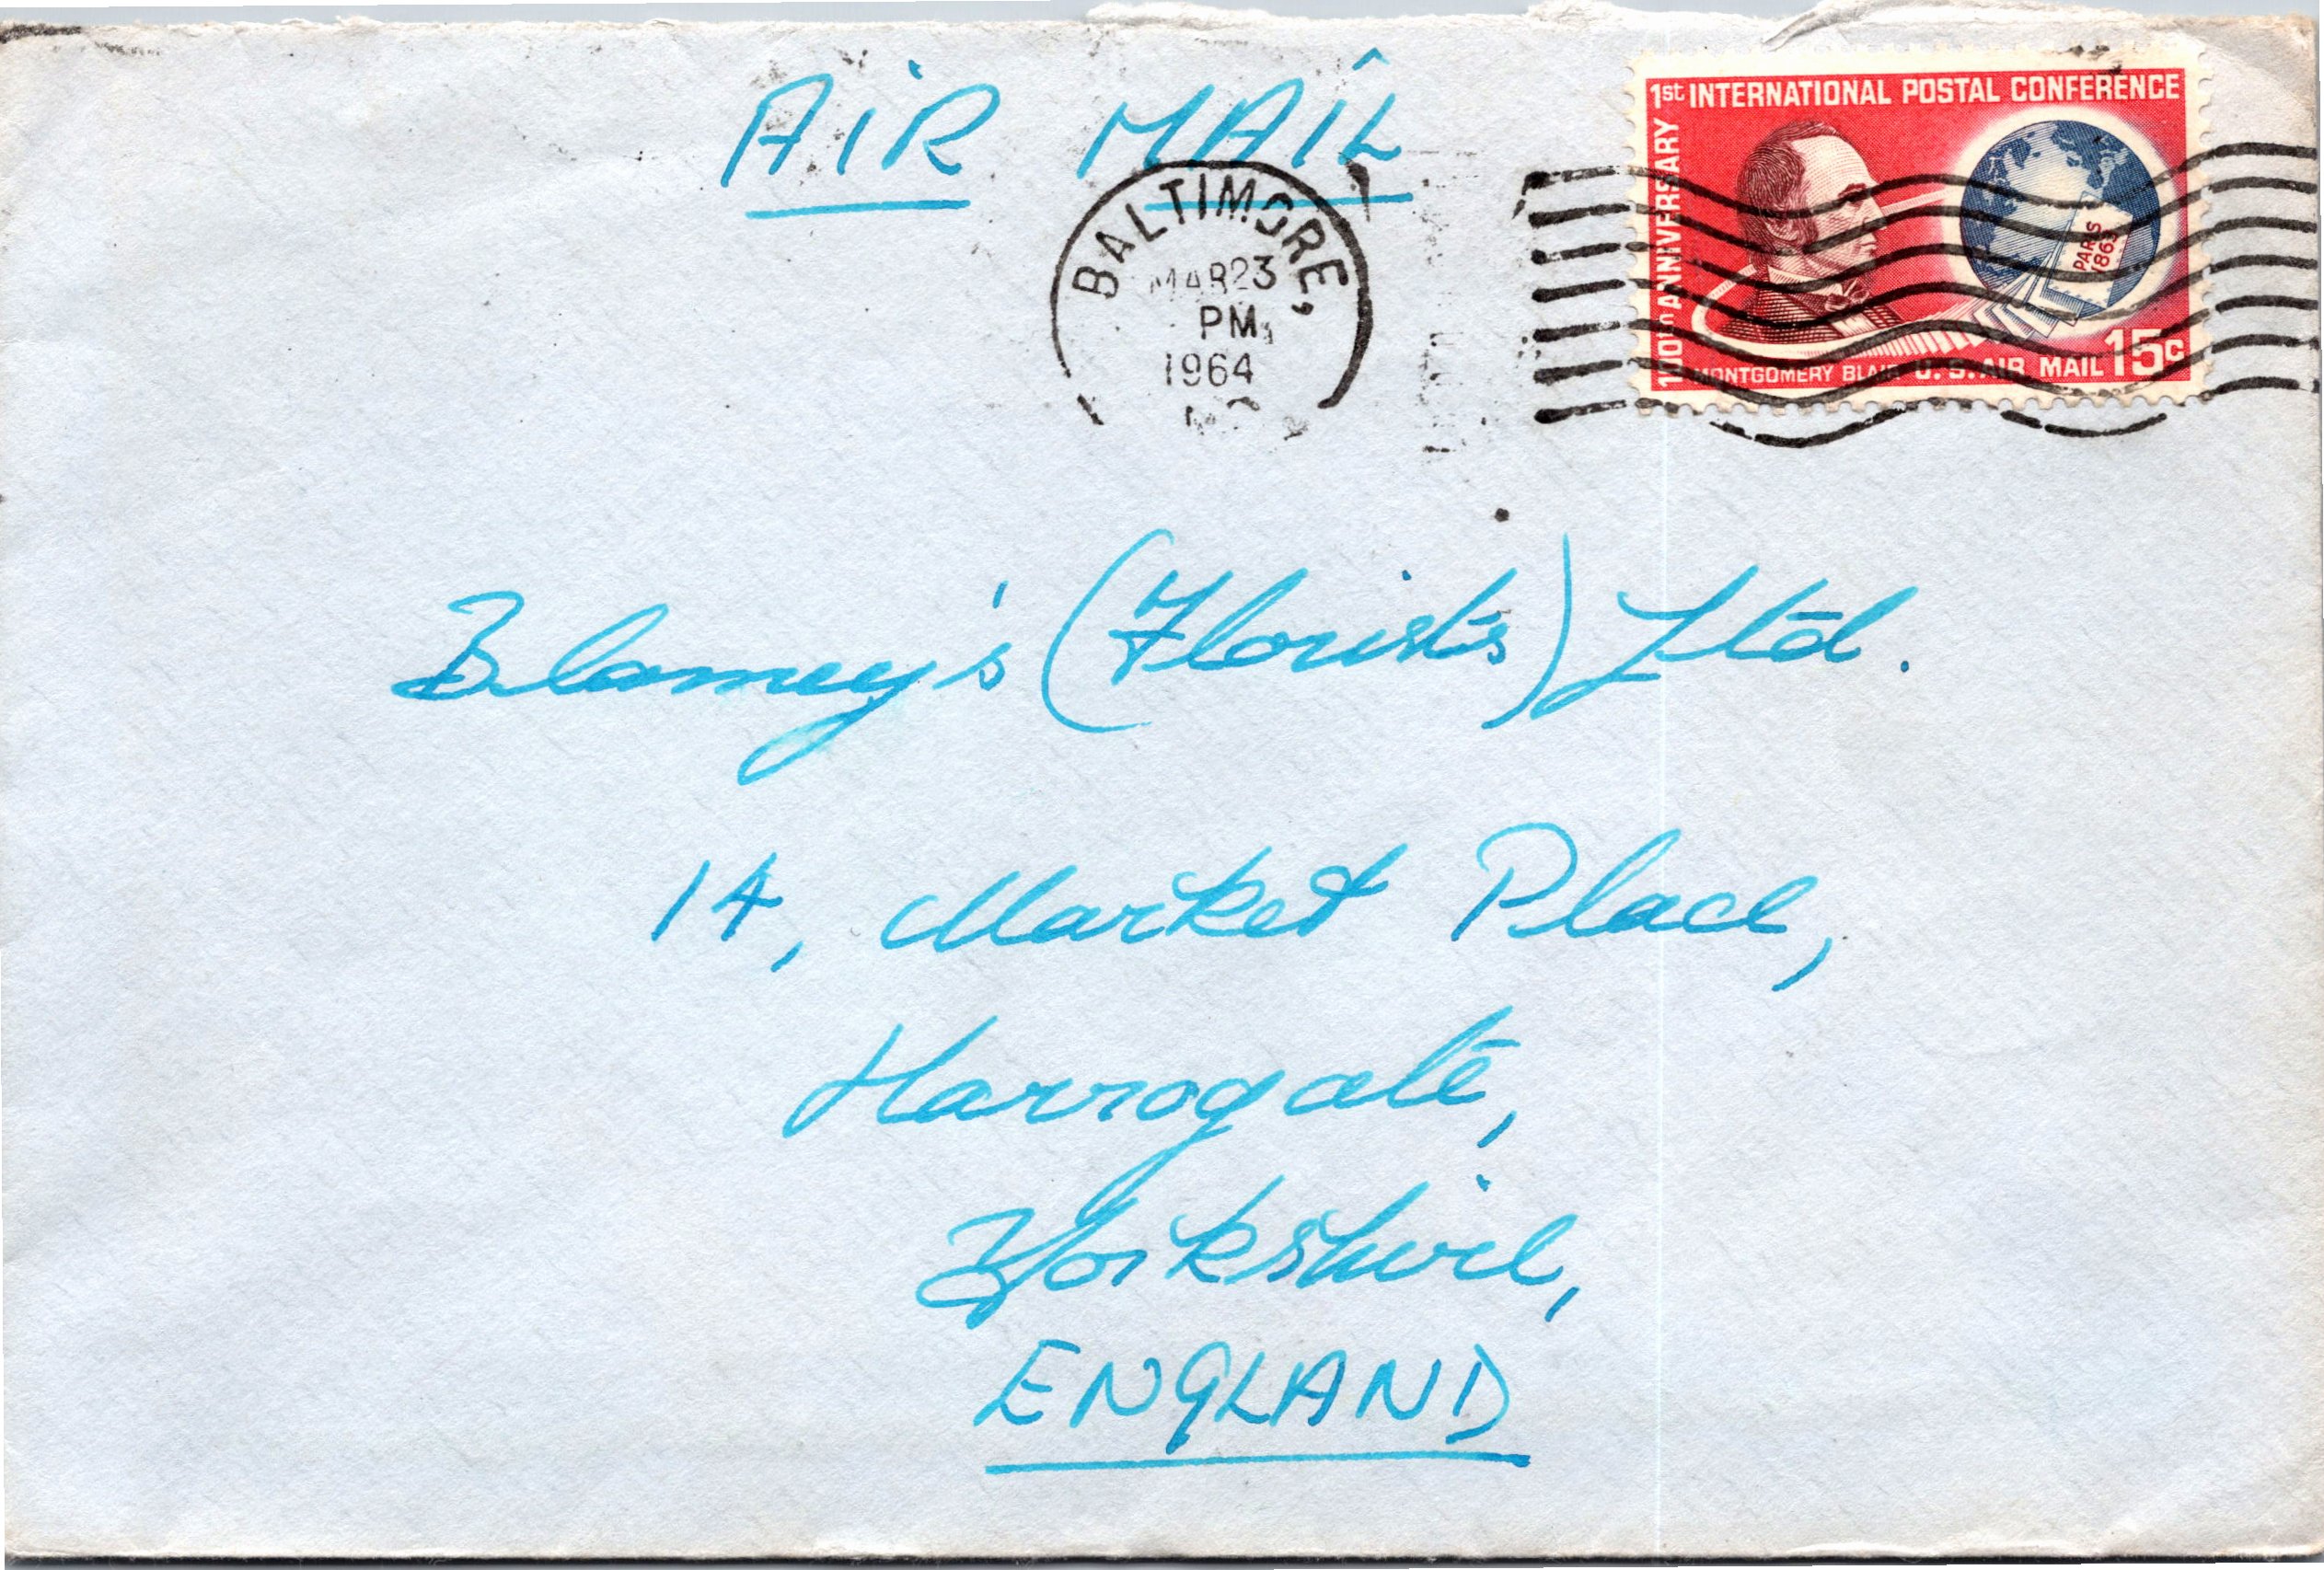 AIR MAIL
BALTIMORE,
MAR 23
PM
1964
1st INTERNATIONAL POSTAL CONFERENCE
100th ANNIVERSARY
PARIS
1863
MONTGOMERY BLAIR U.S. AIR MAIL 15c
Blamey's (Florists) Ltd.
14, Market Place,
Harrogate,
Yorkshire,
ENGLAND